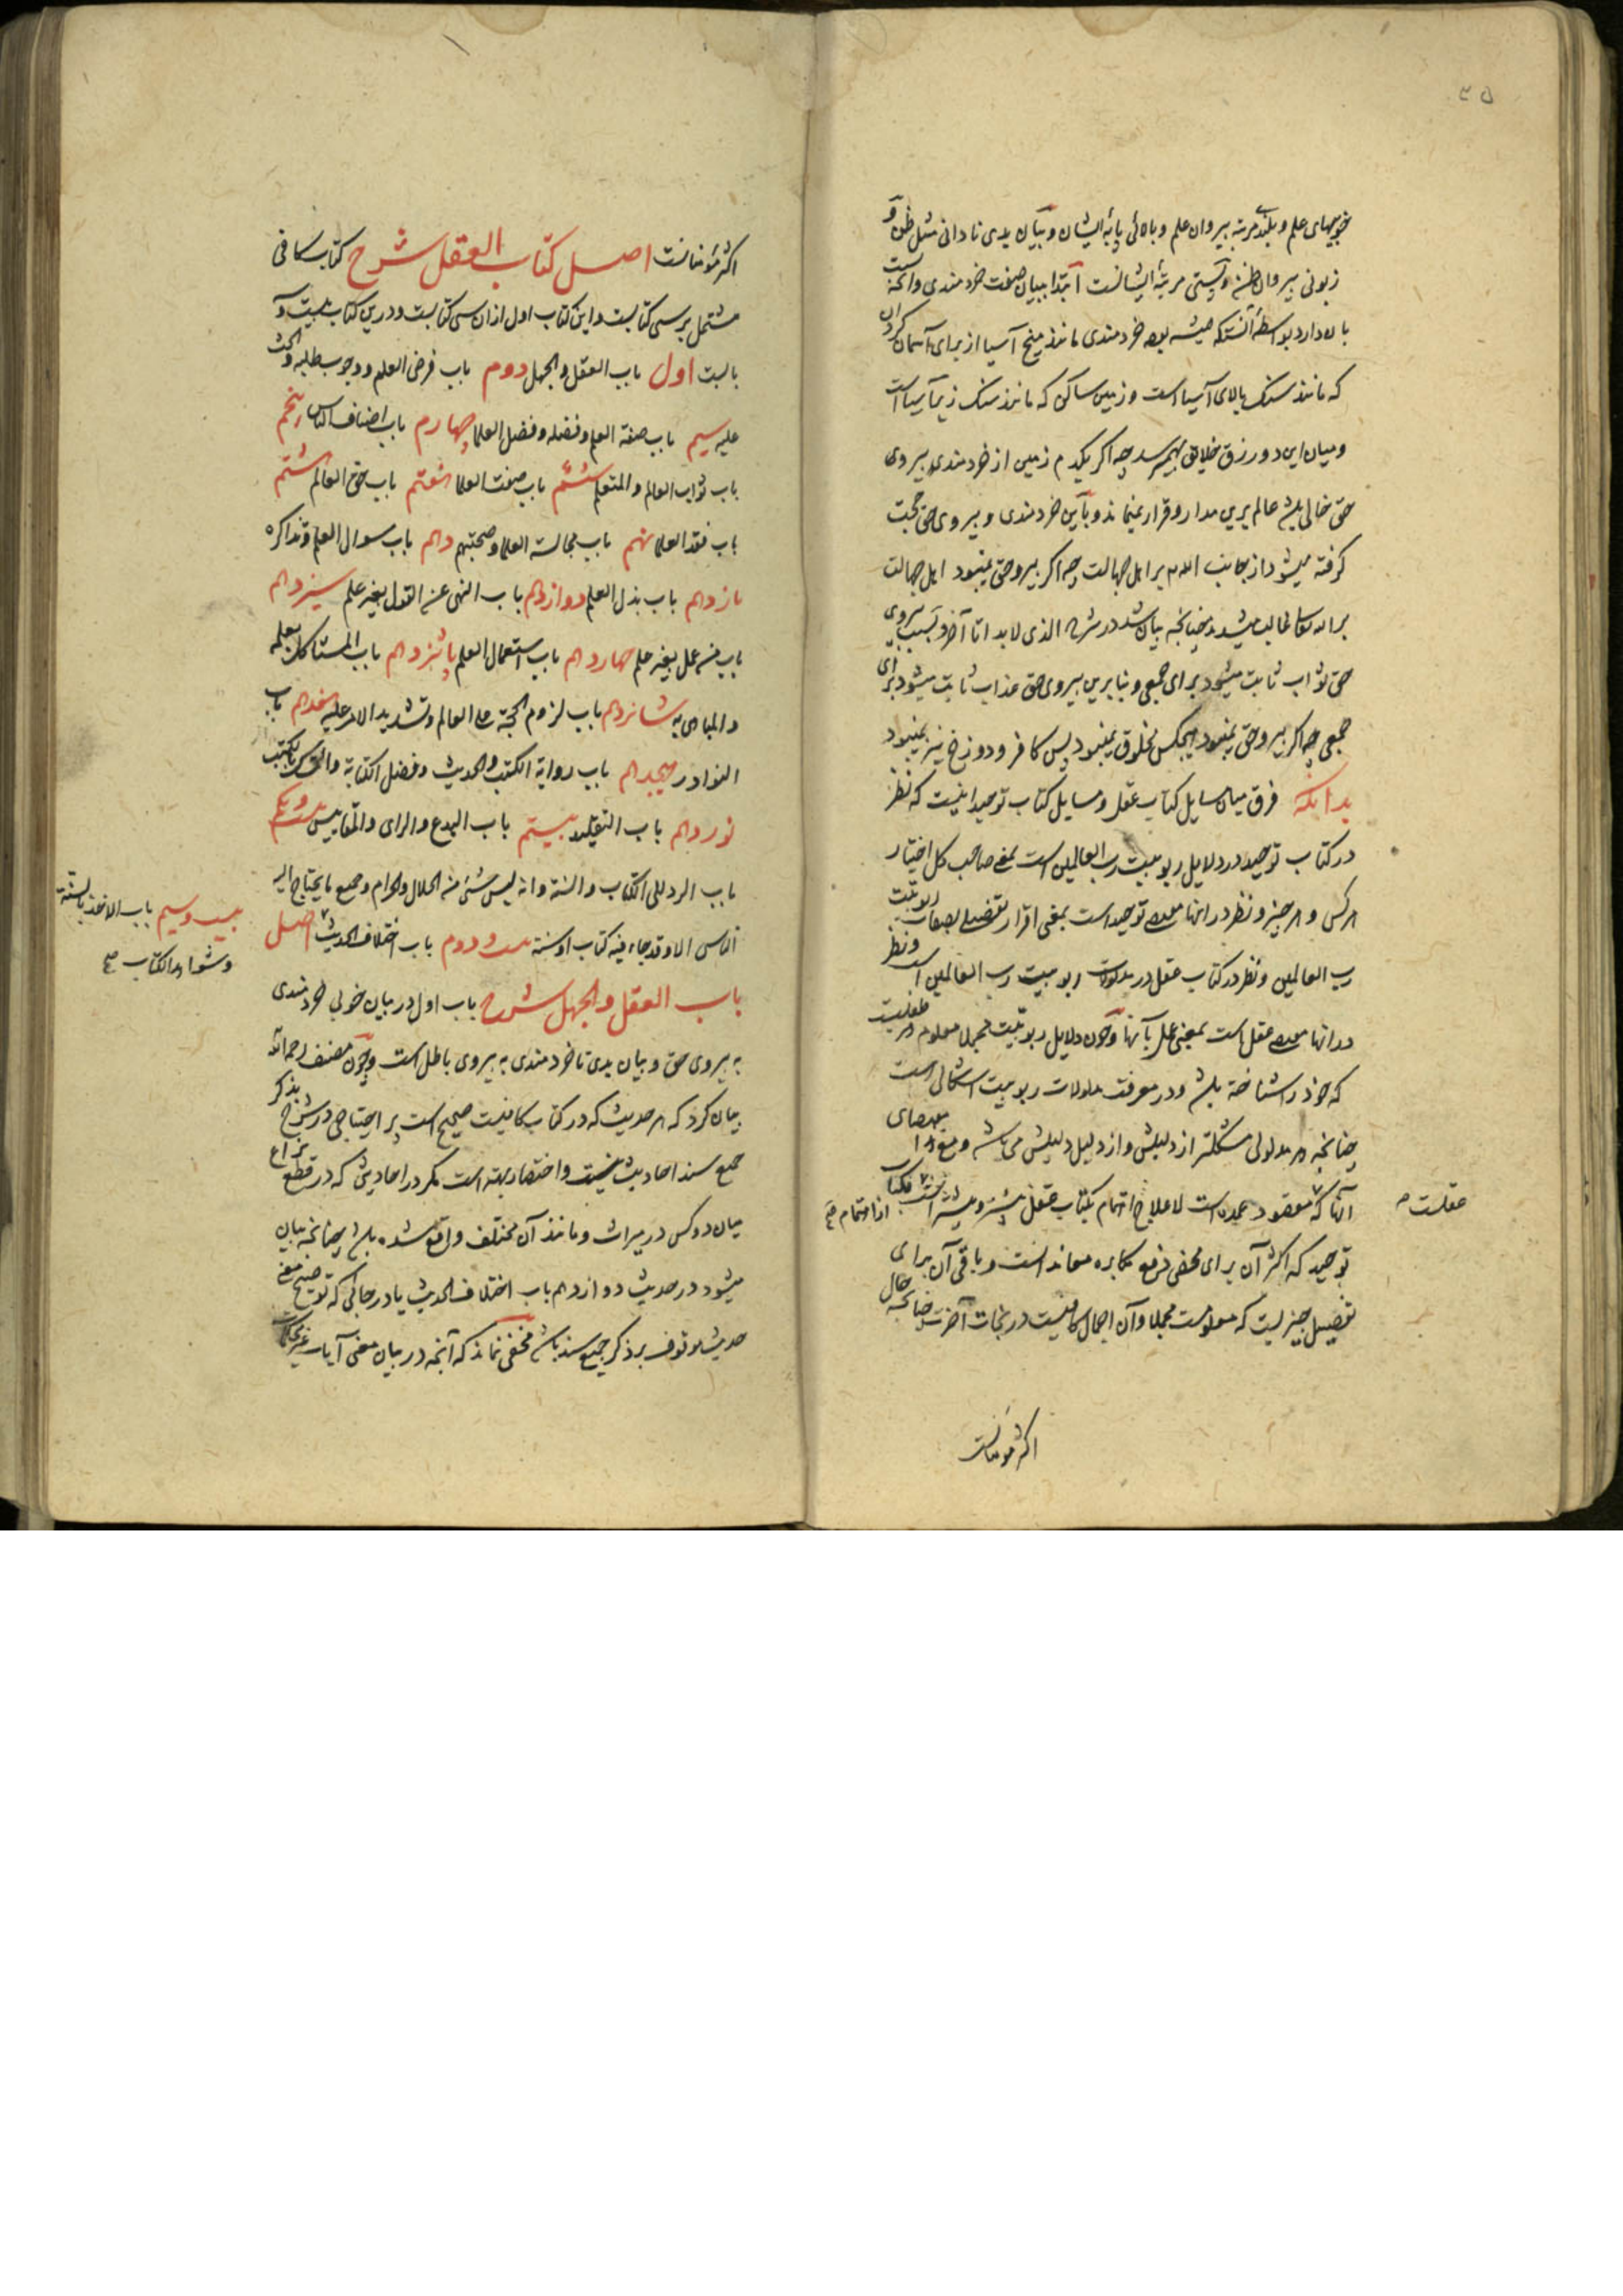 ۳۵
خوبیهای علم و بلندی مرتبه پیروان علم و بالائی پایه ایشان و بیان بدی نادانی مثل ظن و
زبونی پیروان ظن و پستی مرتبه ایشانست ابتدا ببیان صفت خردمندی و آنچه
بآن دارد بواسطه آنست که همیشه خردمندی مانند میخ آسیا از برای آسمان گردان
که مانند سنک بالای آسیا است و زمین ساکن که مانند سنک زیر آسیا است
و میان این دو رزق خلایق بهم میرسد چه اکر یکدم زمین از خردمندی و پیروی
حق خالی باشد عالم برین مدار و قرار نمیماند و باین خردمندی و پیروی حق حجت
کرفته میشود از جانب الله بر اهل جهالت چه اکر پیرو حق نمیبود اهل جهالت
بر الله تعالی غالب میشدند چنانچه بیان شد در شرح الذی لابد تا آخر و بسبب پیروی
حق ثواب ثابت میشود برای جمعی و بنابرین پیروی حق عذاب ثابت میشود برای
جمعی چه اکر پیرو حق نمیبود هیچکس مخلوق نمیبود پس کافر و دوزخ نیز نمیبود
بدانکه فرق میان مسایل کتاب عقل و مسایل کتاب توحید اینست که نظر
در کتاب توحید در دلایل ربوبیت رب العالمین است بمعنی صاحب کل اختیار
هر کس و هر چیز و نظر در اینها توحید است بمعنی اقرار تفصیلی بصفات ربوبیت
رب العالمین و نظر در کتاب عقل در مدلولات ربوبیت رب العالمین است و نظر
در آنها عقل است بمعنی عمل بآنها و چون دلایل ربوبیت مجملا معلوم هر طفلیست
که خود را شناخته باشد و در معرفت مدلولات ربوبیت اشکالی است
چنانچه هر مدلولی مشکلتر از دلیلش و از دلیل دلیلش می باشد و مع هذا
آنها که مقصود عمده است لاعلاج اهتمام بکتاب عقل بیشتر و پیشتر است
عقلست
از اهتمام بکتاب
توحید که اکثر آن برای محض دفع مکابره معاند است و باقی آن برای
تفصیل چیزیست که معلومست مجملا و آن اجمال کافیست در نجات آخرت چنانچه حال
اکثر مومنانست
اکثر مؤمنانست اصل کتاب العقل شرح کتاب کافی
مشتمل بر سی کتابست و این کتاب اول از آن سی کتابست و درین کتاب بیست و
بابست اول باب العقل و الجهل دوم باب فرض العلم و وجوب طلبه و الحث
علیه سیم باب صفة العلم و فضله و فضل العلما چهارم باب اصناف الناس پنجم
باب ثواب العالم و المتعلم ششم باب صفت العلما هفتم باب حق العالم هشتم
باب فقد العلما نهم باب مجالسة العلما و صحبتهم دهم باب سوال العلم و تذاکره
یازدهم باب بذل العلم دوازدهم باب النهی عن القول بغیر علم سیزدهم
باب من عمل بغیر علم چهاردهم باب استعمال العلم پانزدهم باب المستاکل بعلمه
و المباهی به شانزدهم باب لزوم الحجة علی العالم و تشدید الامر علیه هفدهم باب
النوادر هیجدهم باب روایة الکتب و الحدیث و فضل الکتابة و التمسک بالکتب
نوزدهم باب التقلید بیستم باب البدع و الرای و المقاییس بیست و یکم
باب الرد الی الکتاب و السنة و انه لیس شیء من الحلال و الحرام و جمیع ما یحتاج الیه
الناس الا و قد جاء فیه کتاب او سنة بیست و دوم باب اختلاف الحدیث اصل
بیست و سیم باب الاخذ بالسنة
و شواهد الکتاب
باب العقل و الجهل شرح باب اول در بیان خوبی خردمندی
به پیروی حق و بیان بدی ناخردمندی به پیروی باطل است و چون مصنف رحمه الله
بیان کرد که هر حدیث که در کتاب کافیست صحیح است پر احتیاجی در شرح بذکر
جمیع سند احادیث نیست و اختصار بهتر است مکر در احادیثی که در قطع نزاع
میان دو کس در میراث و مانند آن مختلف واقع شده باشد چنانچه بیان
میشود در حدیث دوازدهم باب اختلاف الحدیث یا در جائی که توضیح معنی
حدیث موقوف بر ذکر جمیع سند باشد مخفی نماند که آنچه در بیان معنی آیات غیر محکمات